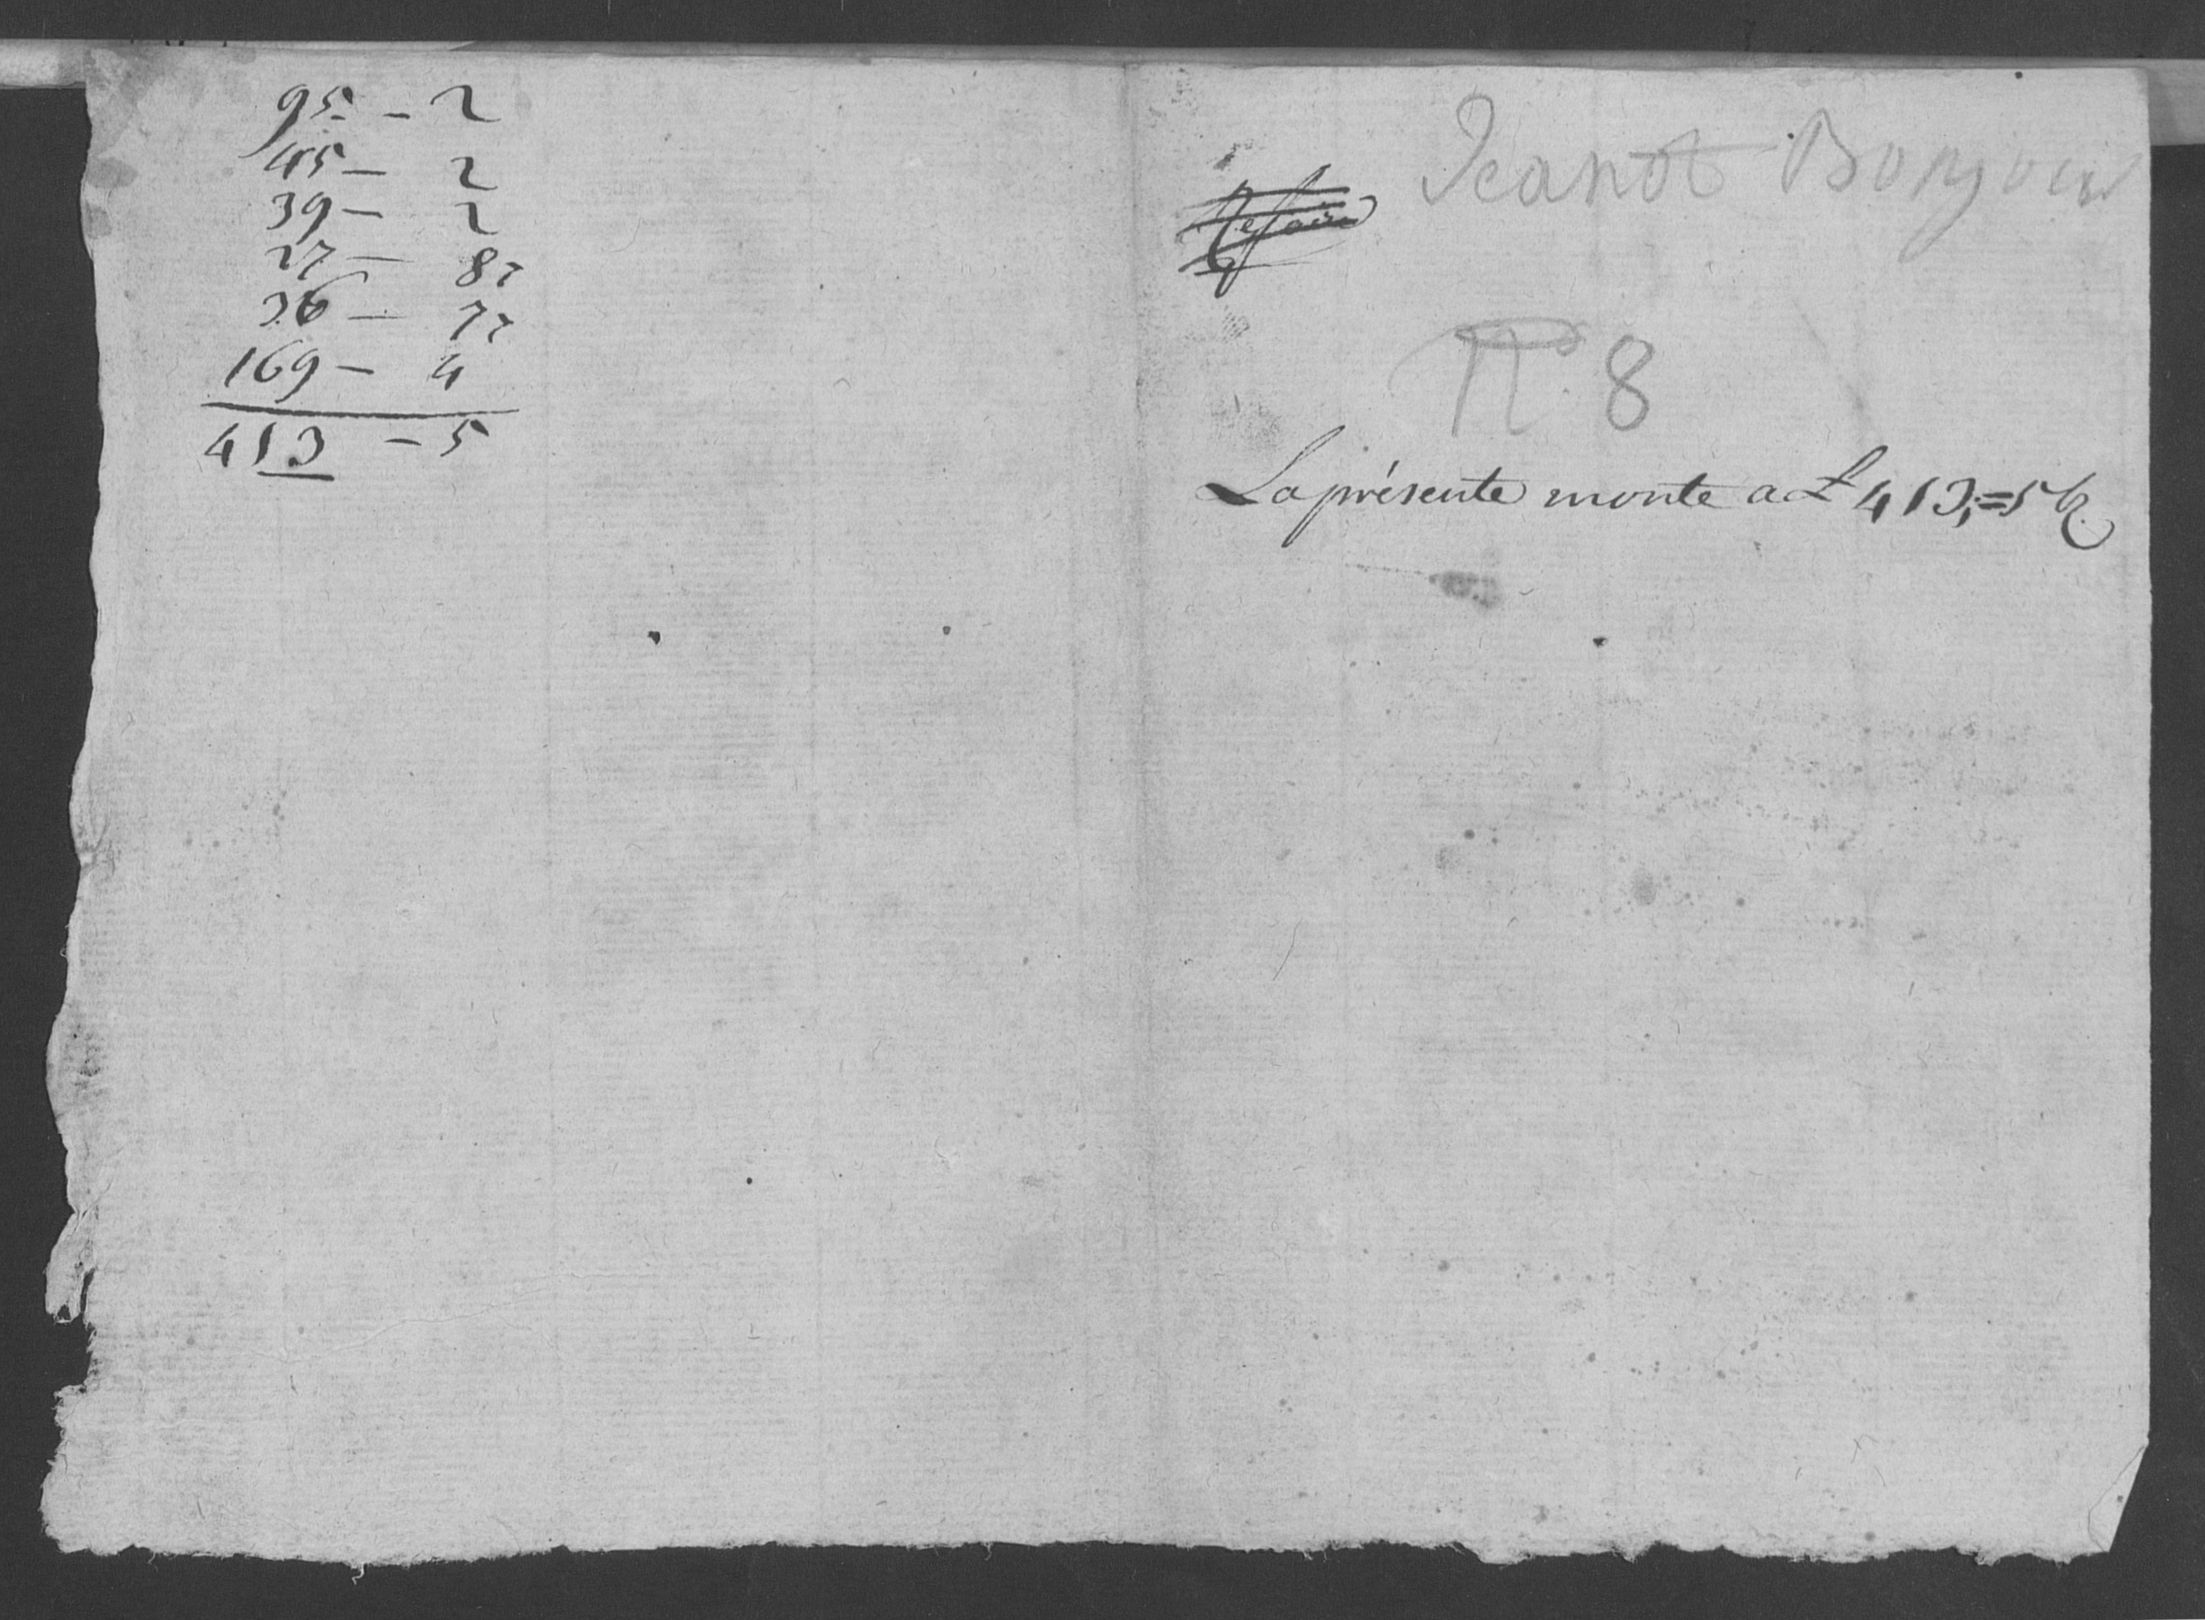 95 - 2
45 - 2
39 - 2
27 - 82
36 - 72
169 - 4
413 - 5
Jeanot Bonjour
Refaire
N.º 8
La présente monte a £ 413,=5